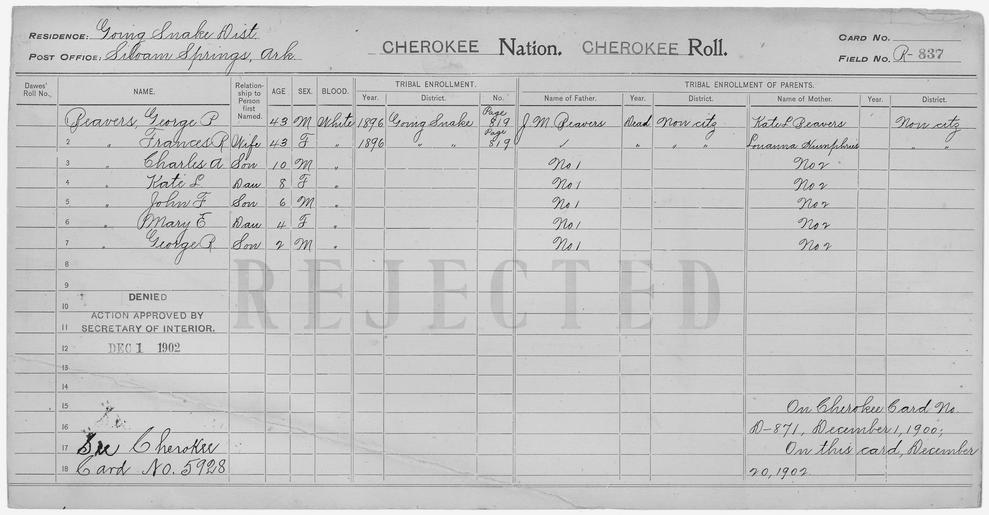 RESIDENCE: Going Snake Dist.
POST OFFICE: Siloam Springs, Ark.
CHEROKEE Nation. CHEROKEE Roll.
CARD NO.
FIELD NO. R-837
Dawes' Roll No. NAME. Relationship to Person first Named. AGE SEX. BLOOD. TRIBAL ENROLLMENT. TRIBAL ENROLLMENT OF PARENTS.
Year. District. No. Name of Father. Year. District. Name of Mother. Year. District.
Beavers, George P 43 M White 1896 Going Snake Page 819 J M Beavers Dead Non citz Kate L Beavers Non citz
2 " Frances R Wife 43 F " 1896 " " Page 819 " " " Louanna Humphries " "
3 " Charles A Son 10 M " No 1 No 2
4 " Kate L Dau 8 F " No 1 No 2
5 " John F Son 6 M " No 1 No 2
6 " Mary E Dau 4 F " No 1 No 2
7 " George R Son 2 M " No 1 No 2
8
9
REJECTED
DENIED
10
ACTION APPROVED BY
11 SECRETARY OF INTERIOR.
12 DEC 1 1902
13
14
15 On Cherokee Card No.
16 D-871, December 1, 1900;
17 See Cherokee On this card, December
18 Card No. 5928 20, 1902